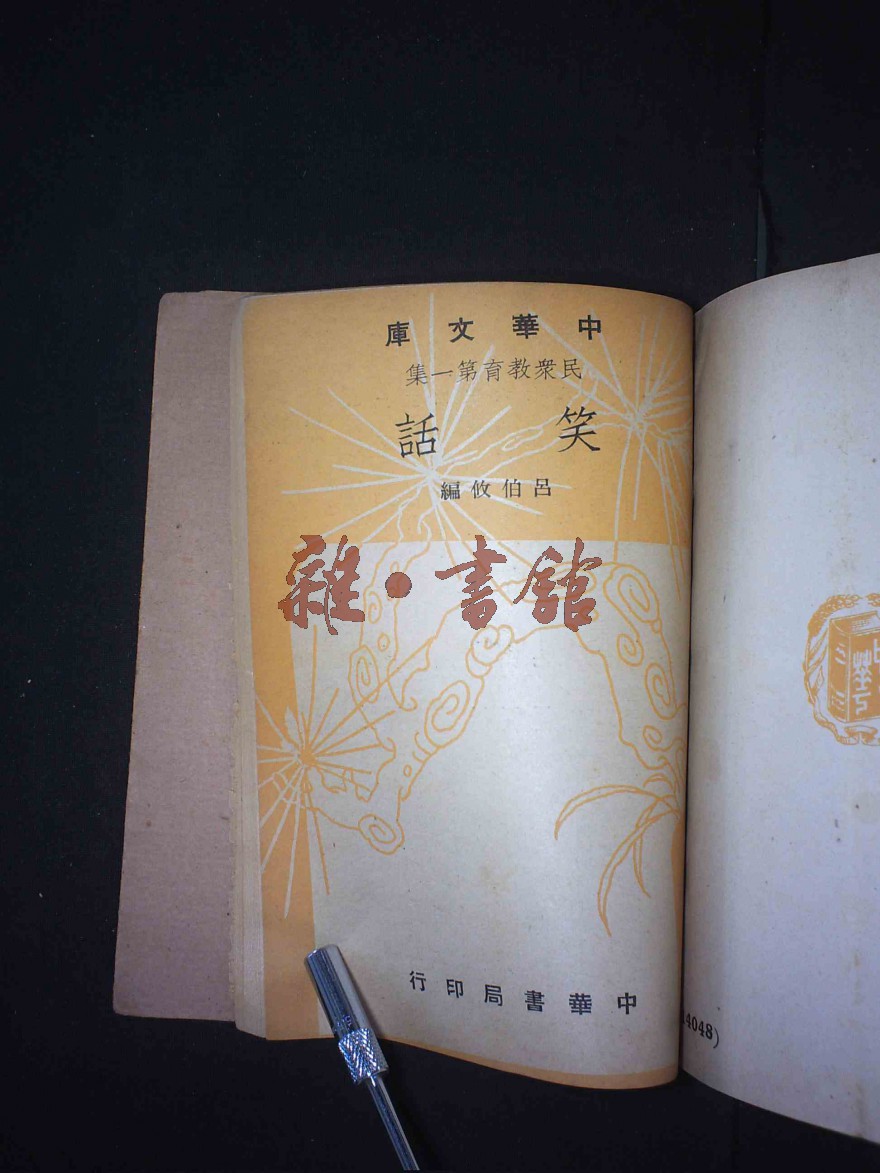 中華文庫
民衆教育第一集
笑話
呂伯攸編
雜·書館
中華書局印行
4048)